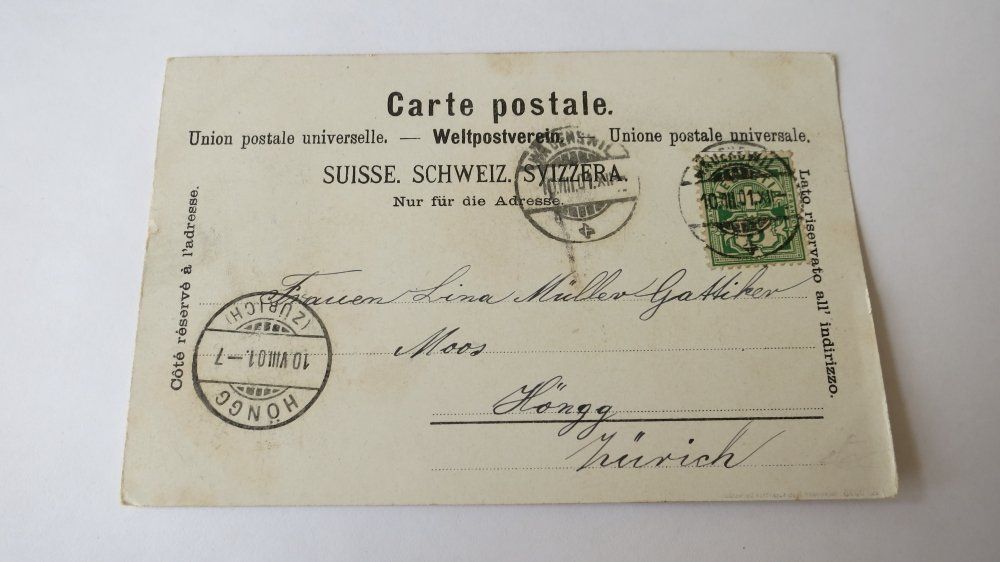 Carte postale.
Union postale universelle. — Weltpostverein. — Unione postale universale.
SUISSE. SCHWEIZ. SVIZZERA.
Nur für die Adresse.
Côté réservé à l'adresse.
Lato riservato all' indirizzo.
10.VIII.01.XII
10.VIII.01.XI
5
Frauen Lina Müller Gattiker
Moos
Höngg
Zürich
(ZÜRICH)
10.VIII.01.–7
HÖNGG